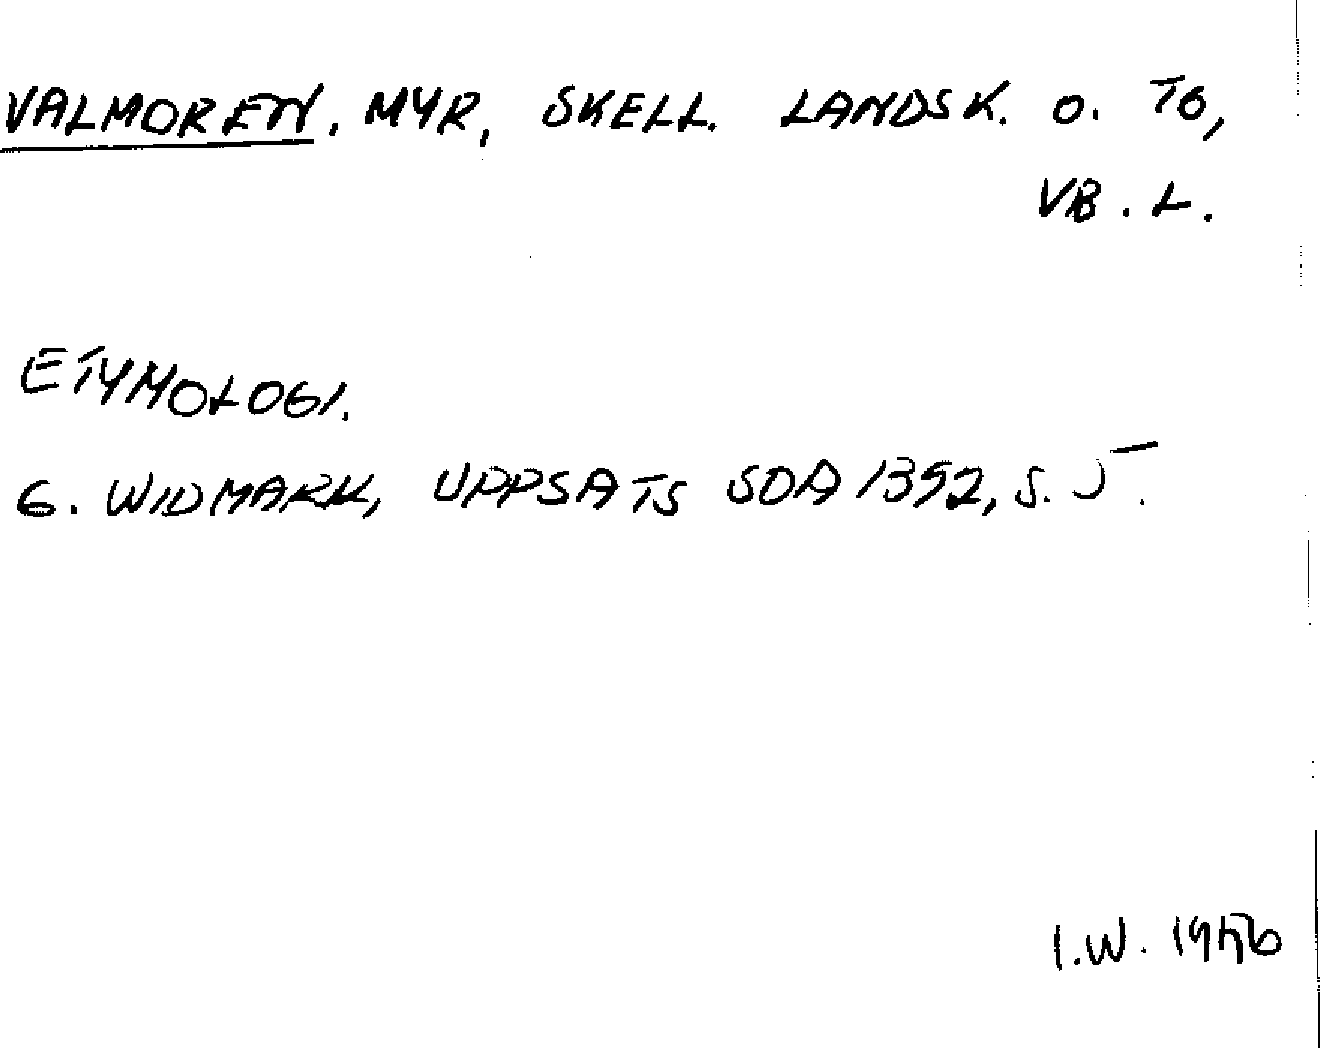 VALMOREN. MYR, SKELL. LANDSK. O. TG,
VB. L.
ETYMOLOGI.
G. WIDMARK, UPPSATS SOA 1392, S. 5.
I.W. 1956